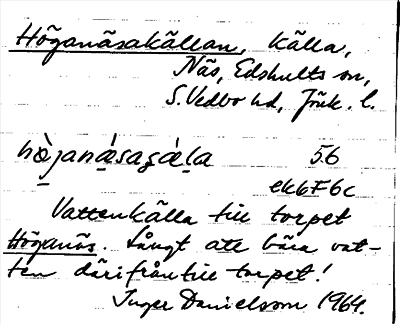 Höganäsakällan, källa,
Näs, Edshults sn,
S. Vedbo hd, Jönk. l.
56
ek6F6c
Vattenkälla till torpet
Höganäs. Långt att bära vat-
ten därifrån till torpet!
Inger Danielsson 1964.